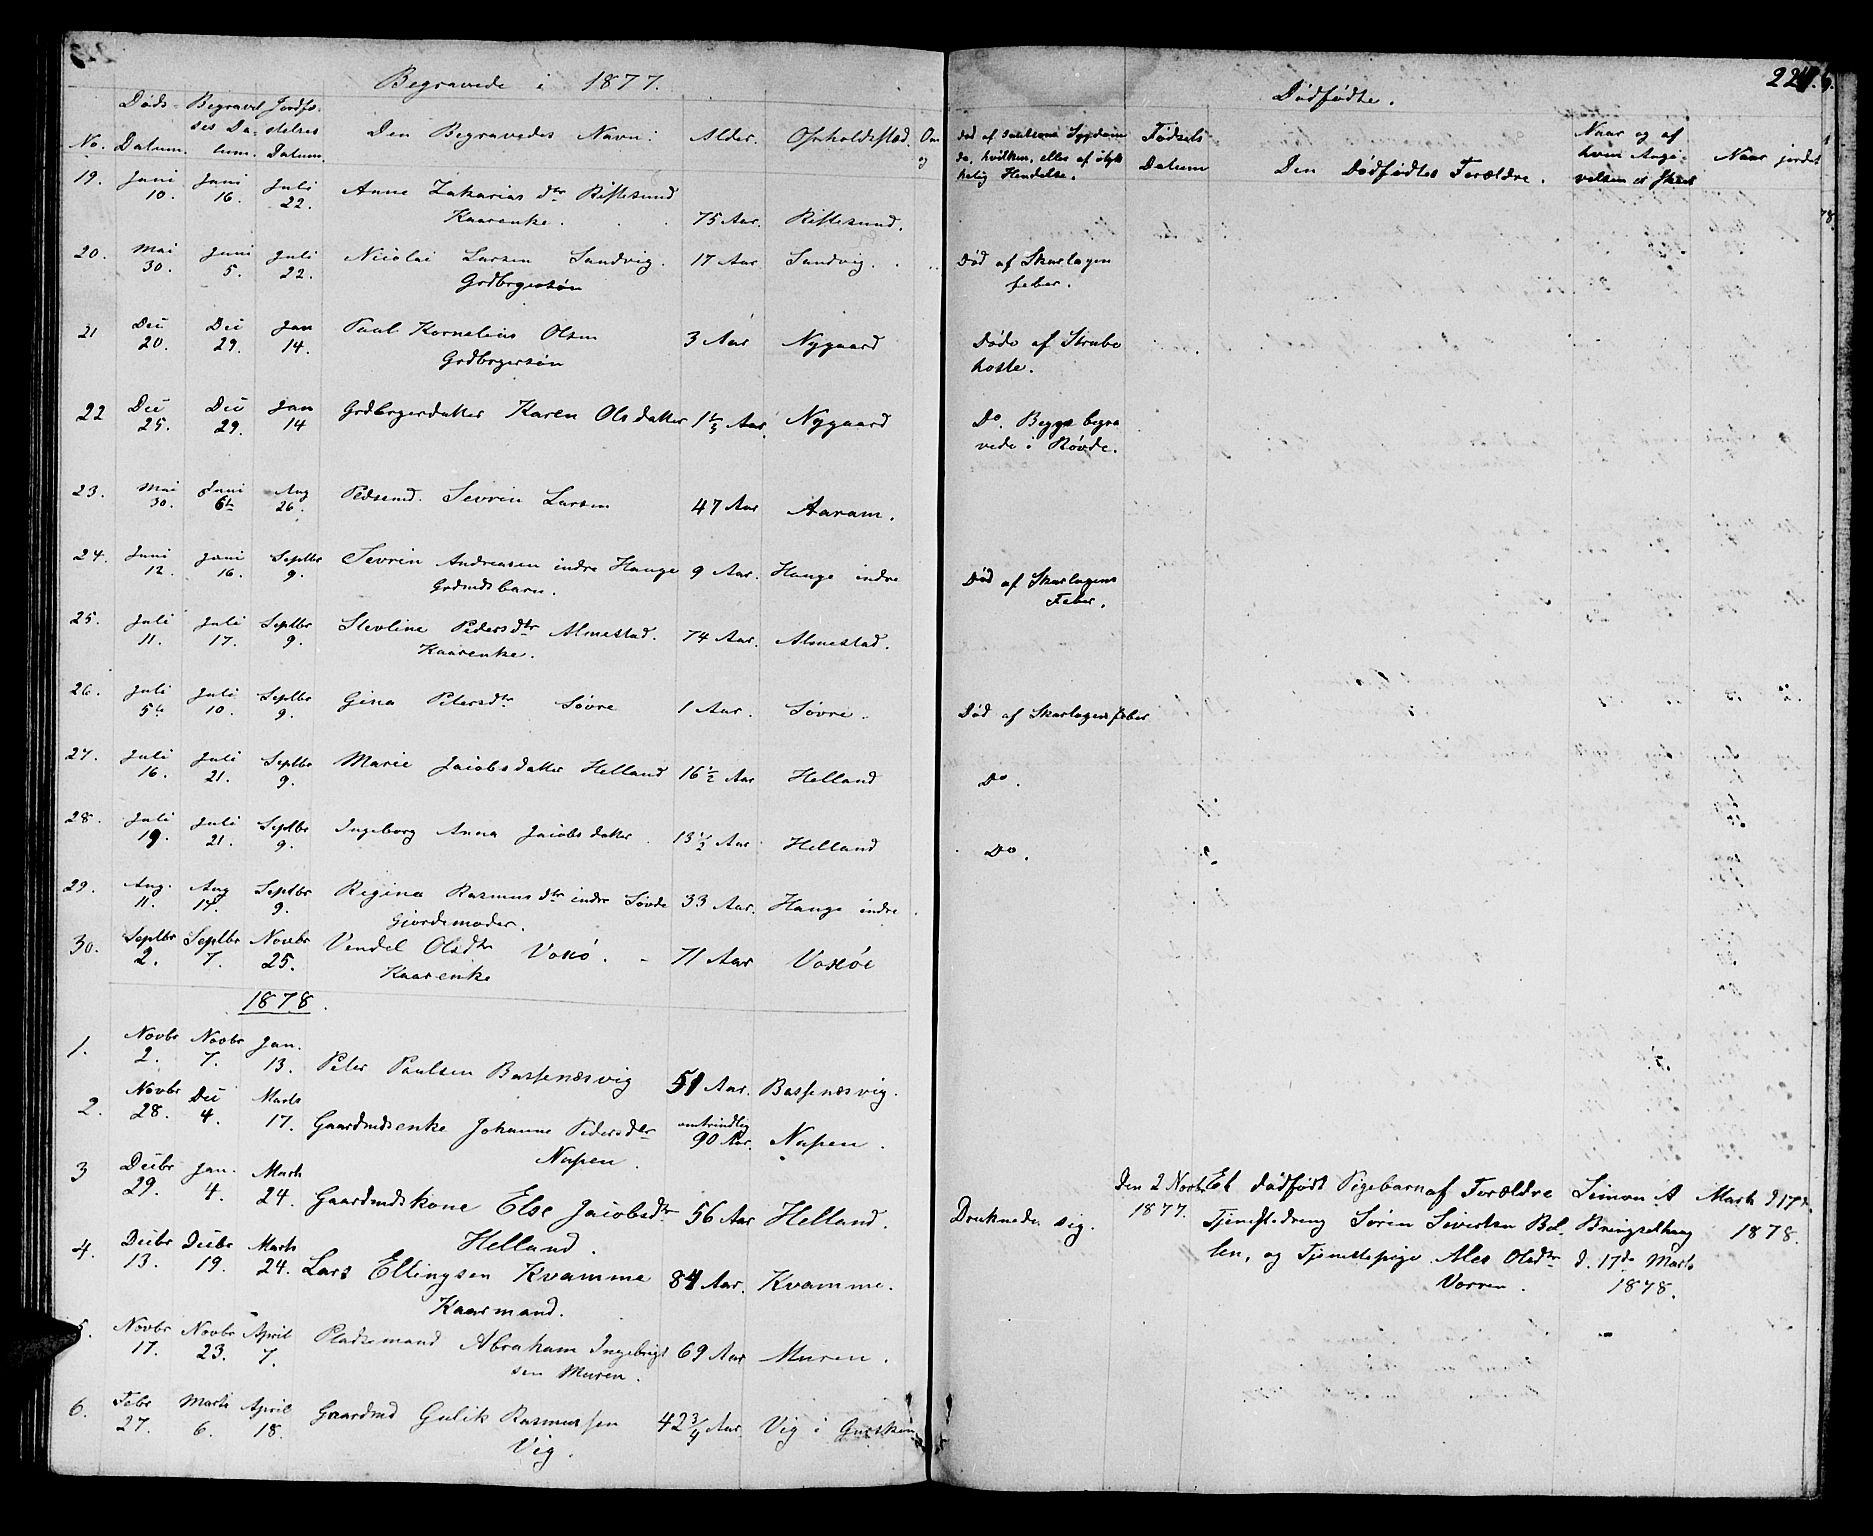 Begravede i 1877.
No. Døds-Datum. Begravelses Datum. Jordfæstelses Datum. Den Begravedes Navn: Alder. Opholdssted. Om og
19. Juni 10. Juni 16. Juli 22. Anne Zakarias dtr Riststesund
Kaarenke. 75 Aar.
20. Mai 30. Juni 5. Juli 22. Nicolai Larsen Sandvig. 17 Aar Sandvig.
Grdbrgersøn
21 Dec 20. Dec 29. Jan 14. Paul Kornelius Olsen 3 Aar Nygaard
Grdbrgersøn
22 Dec 25. Dec 29. Jan 14 Grdbrgerdatter Karen Olsdatter Aar. Nygaard
23. Mai 30. Juni 6te Aug 26. Sevrin Larsen 47 Aar Aaram.
24. Juni 12. Juni 16. Septbr 9. Sevrin Andreasen indre Hauge 9 Aar. Hauge indre
Grdmdsbarn.
25. Juli 11. Juli 17. Septbr 9. Stevline Pedersdtr Almestad. 74 Aar. Almestad.
Kaarenke.
26. Juli 5te Juli 10. Septbr 9. Gina Petersdtr Søvre 1 Aar. Søvre.
27. Juli 16. Juli 21. Septbr 9. Marie Jacobsdatter Helland 16 1/2 Aar Helland
28. Juli 19. Juli 21. Septbr 9. Ingeborg Anna Jacobsdatter. 13 1/2 Aar Helland
29. Aug. 11. Aug 17. Septbr 9. Regina Rasmusdtr indre Søvde 33 Aar. Hauge indre
Gjordemoder.
30. Septbr 2. Septbr 7. Novbr 25. Vendel Olsdtr Voksø. 71 Aar Voksøe
Kaarenke
1878.
1. Novbr 2. Novbr 7. Jan. 13. Peter Paulsen Bassenæsvig 51 Aar. Bassenæsvig.
2. Novbr 28. Dec 4. Marts 17. Gaardmdsenke Johanne Pedersdtr omtrindlig 90 Aar. Nupen.
Nupen.
3 Decbr 29. Jan. 4. Marts 24. Gaardmdskone Else Jacobsdtr 56 Aar Helland.
Helland.
4. Decbr 13. Decbr 19. Marts 24. Lars Ellingsen Kvamme 84 Aar. Kvamme.
Kaarmand.
5. Novbr 17. Novbr 23. April 7. Pladsemand Abraham Ingebrigt 69 Aar Muren.
sen Muren.
6. Febr 27. Marts 6. April 18. Gaardmd Gulik Rasmussen 42 3/4 Aar Vig i
Vig.
Dødfødte.
død af saadan Sygdom
da hvilken, eller af ulyk
kelig Hendelse.
Fødsels Datum
Den Dødfødtes Forældre.
Naar og af
hvem Angi-
velsen er skeet
Naar jordet
Død af Skarlagen
feber.
Døde af Strube
hoste.
Do. Begge begra
vede i Røvde.
Død af Skarlagens
Feber.
Død af Skarlagensfeber
Do.
Do.
Druknede sig.
Den 2 Novbr
1877.
Et dødfødt Pigebarn af Forældre
Tjenestedreng Søren Sivertsen Bol
len, og Tjenestepige Ales Olsdtr
Vorren.
Simon A
Bringselhaug
d. 17de Marts
1878.
Marts d 17de
1878.